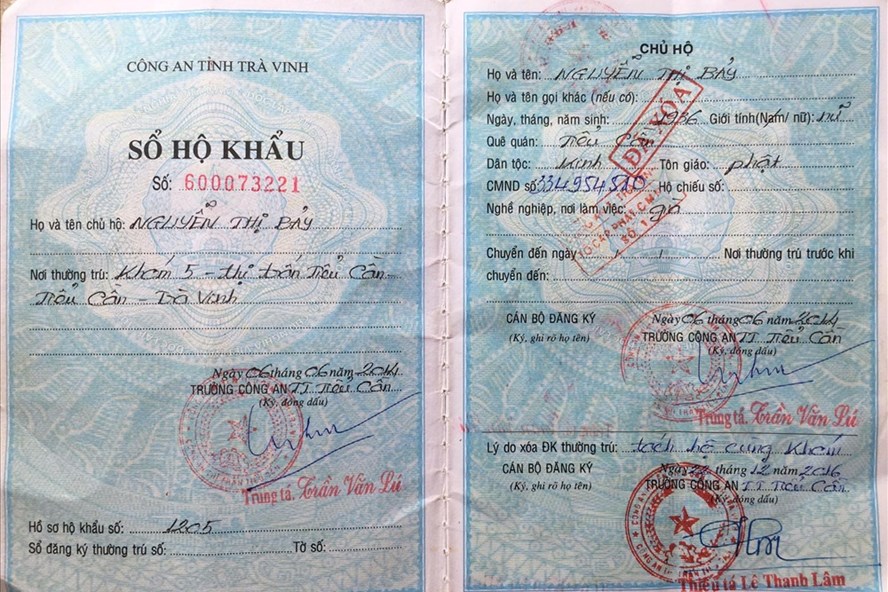 CÔNG AN TỈNH TRÀ VINH
SỔ HỘ KHẨU
Số: 600073221
Họ và tên chủ hộ: NGUYỄN THỊ BẢY
Nơi thường trú: Khóm 5 - thị trấn Tiểu Cần -
Tiểu Cần - Trà Vinh
Ngày 06 tháng 06 năm 2014
TRƯỞNG CÔNG AN TT Tiểu Cần
(Ký, đóng dấu)
Trung tá. Trần Văn Lú
Hồ sơ hộ khẩu số: 1205
Sổ đăng ký thường trú số: Tờ số:
CHỦ HỘ
Họ và tên: NGUYỄN THỊ BẢY
Họ và tên gọi khác (nếu có):
Ngày, tháng, năm sinh: 1936 Giới tính(Nam/ nữ): nữ
Quê quán: Tiểu Cần
ĐÃ XÓA
Dân tộc: Kinh Tôn giáo: phật
CMND số: 334954510 Hộ chiếu số:
Nghề nghiệp, nơi làm việc: già
Chuyển đến ngày / / Nơi thường trú trước khi
chuyển đến:
CÁN BỘ ĐĂNG KÝ
(Ký, ghi rõ họ tên)
Ngày 06 tháng 06 năm 2014
TRƯỞNG CÔNG AN TT Tiểu Cần
(Ký, đóng dấu)
Trung tá. Trần Văn Lú
Lý do xóa ĐK thường trú: tách hộ cùng khóm
CÁN BỘ ĐĂNG KÝ
(Ký, ghi rõ họ tên)
Ngày 22 tháng 12 năm 2016
TRƯỞNG CÔNG AN TT Tiểu Cần
(Ký, đóng dấu)
Thiếu tá Lê Thanh Lâm